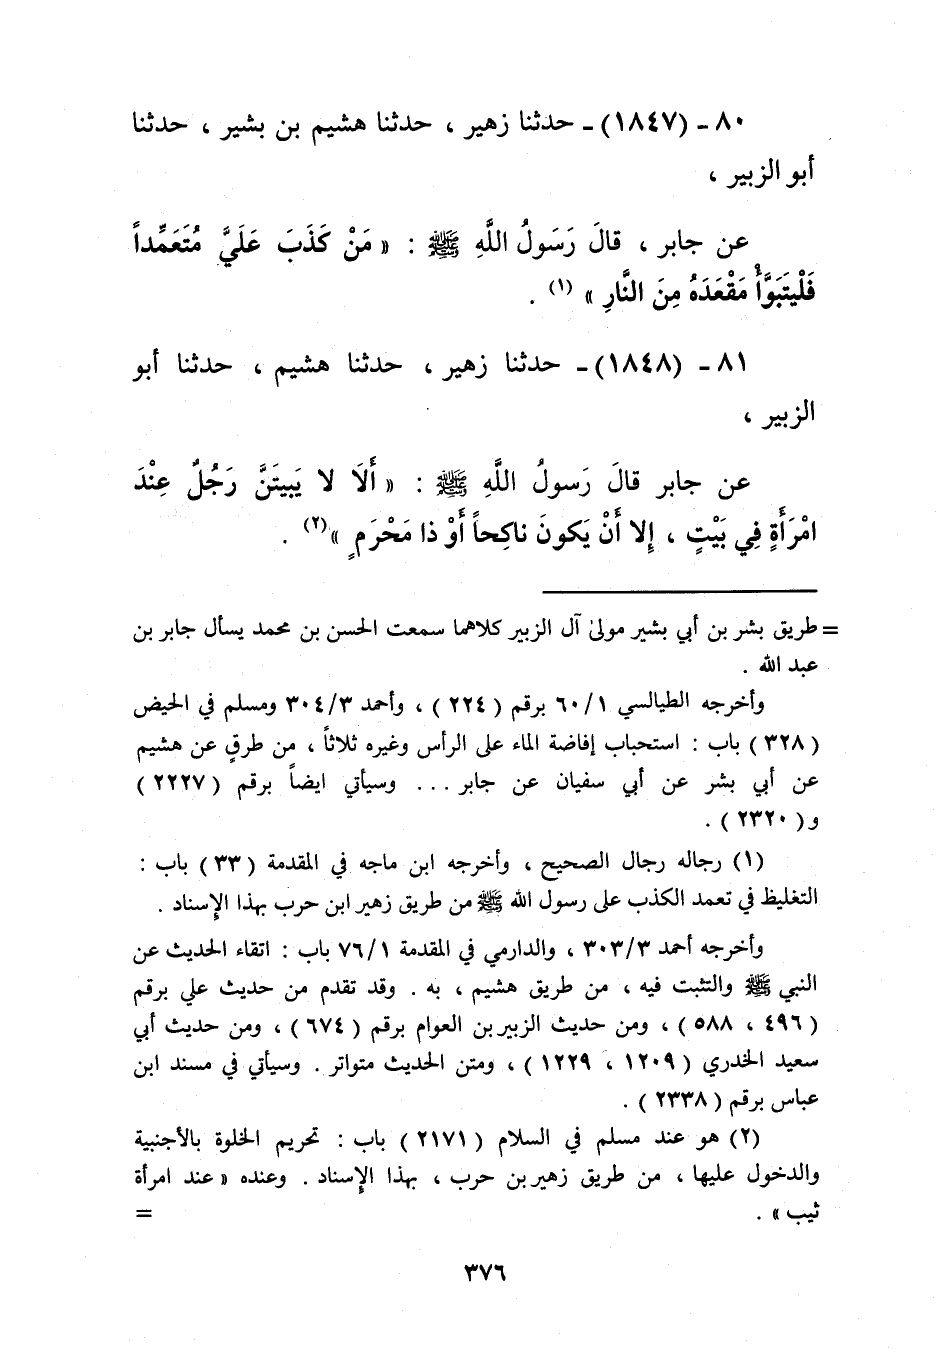 ٨٠ - (١٨٤٧) - حدثنا زهير ، حدثنا هشيم بن بشير ، حدثنا
أبو الزبير ،
عن جابر ، قالَ رَسَولُ اللَّهِ ﷺ : « مَنْ كَذَبَ عَلَيَّ مُتَعَمِّداً
فَلْيَتَبَوَّأْ مَقْعَدَهُ مِنَ النَّارِ » (١) .
٨١ - (١٨٤٨) - حدثنا زهير ، حدثنا هشيم ، حدثنا أبو
الزبير ،
عن جابر قالَ رَسولُ اللَّهِ ﷺ : « أَلَا لا يَبيتَنَّ رَجُلٌ عِنْدَ
امْرَأَةٍ فِي بَيْتٍ ، إِلا أَنْ يَكونَ ناكِحاً أَوْ ذا مَحْرَمٍ »(٢) .
= طريق بشر بن أبي بشير مولىٰ آل الزبير كلاهما سمعت الحسن بن محمد يسأل جابر بن
عبد الله .
وأخرجه الطيالسي ٦٠/١ برقم ( ٢٢٤ ) ، وأحمد ٣٠٤/٣ ومسلم في الحيض
( ٣٢٨ ) باب : استحباب إفاضة الماء على الرأس وغيره ثلاثاً ، من طرقٍ عن هشيم
عن أبي بشر عن أبي سفيان عن جابر ... وسيأتي ايضاً برقم ( ٢٢٢٧ )
و( ٢٣٢٠ ) .
(١) رجاله رجال الصحيح ، وأخرجه ابن ماجه في المقدمة ( ٣٣ ) باب :
التغليظ في تعمد الكذب على رسول الله ﷺ من طريق زهير ابن حرب بهذا الإسناد .
وأخرجه أحمد ٣٠٣/٣ ، والدارمي في المقدمة ٧٦/١ باب : اتقاء الحديث عن
النبي ﷺ والتثبت فيه ، من طريق هشيم ، به . وقد تقدم من حديث علي برقم
( ٤٩٦ ، ٥٨٨ ) ، ومن حديث الزبير بن العوام برقم ( ٦٧٤ ) ، ومن حديث أبي
سعيد الخدري ( ١٢٠٩ ، ١٢٢٩ ) ، ومتن الحديث متواتر . وسيأتي في مسند ابن
عباس برقم ( ٢٣٣٨ ) .
(٢) هو عند مسلم في السلام ( ٢١٧١ ) باب : تحريم الخلوة بالأجنبية
والدخول عليها ، من طريق زهير بن حرب ، بهذا الإسناد . وعنده « عند امرأة
ثيب » . =
٣٧٦